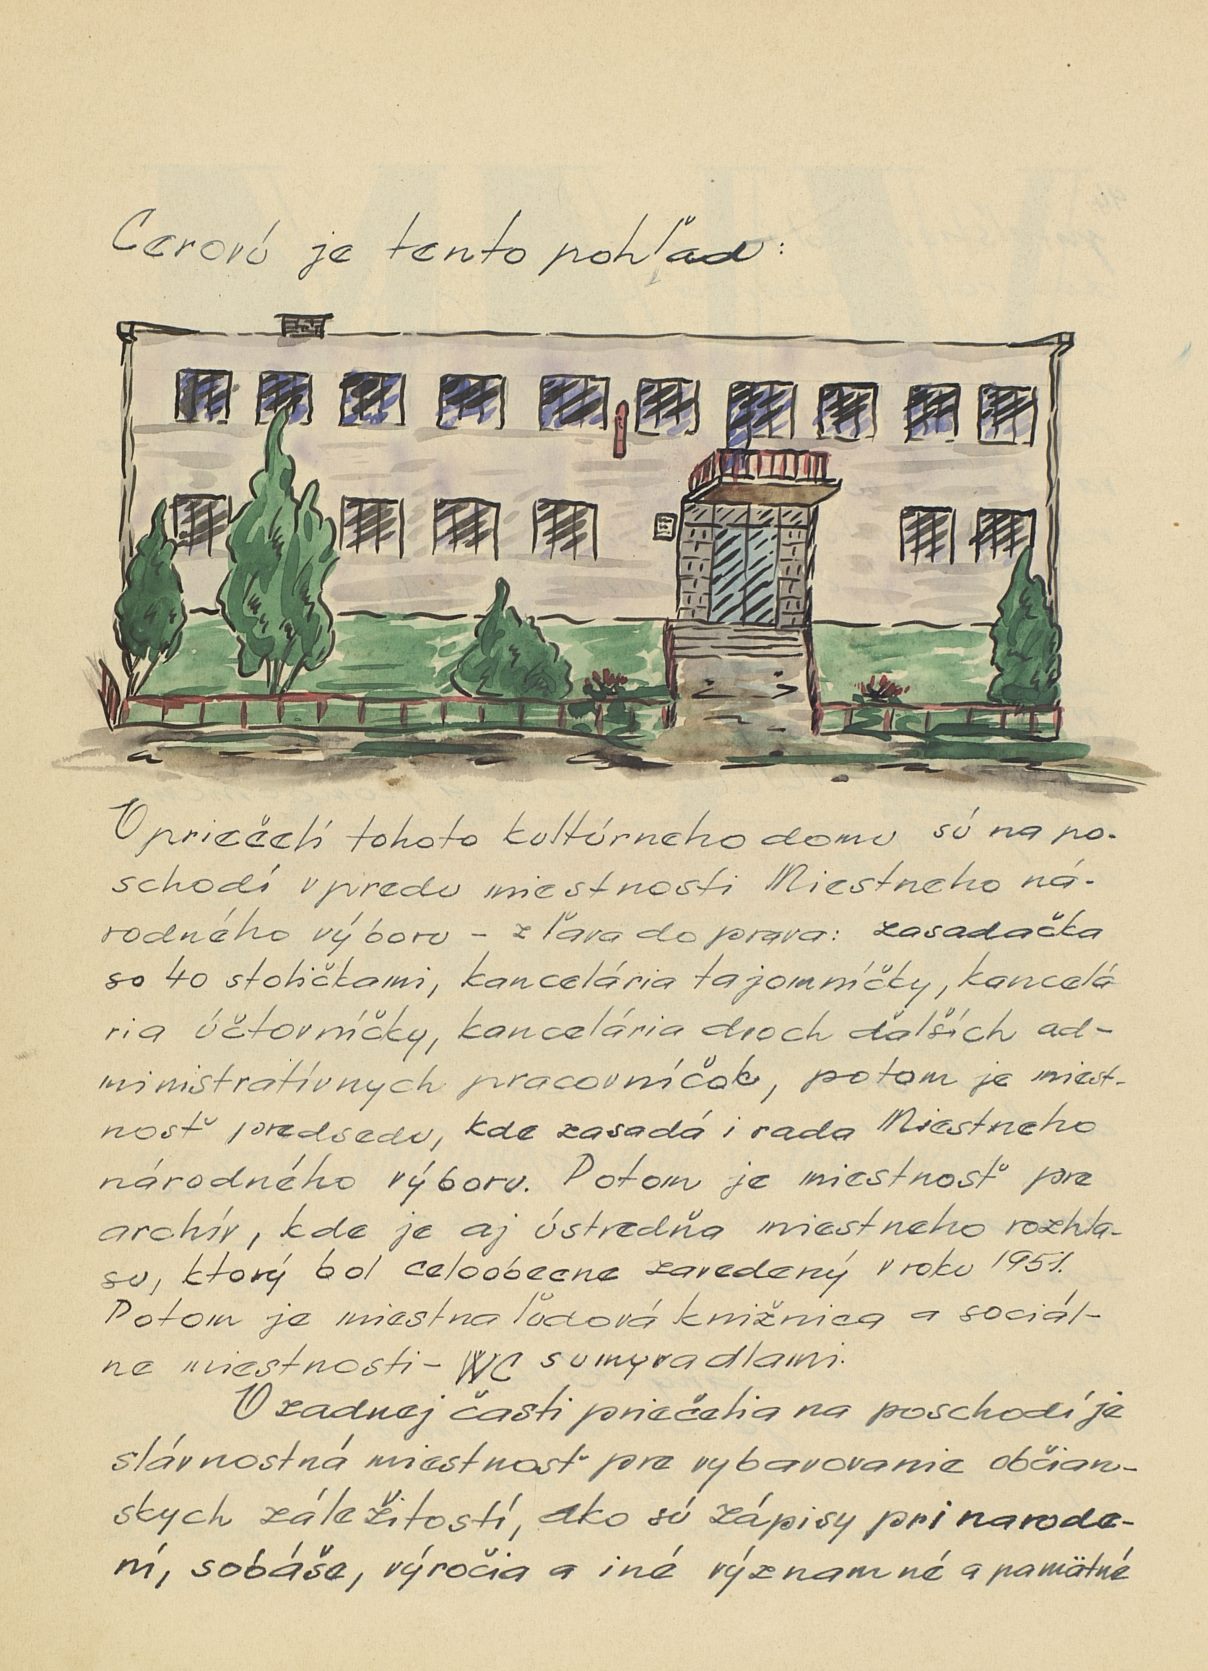 Cerovú je tento pohľad:
V priečelí tohoto kultúrneho domu sú na po-
schodí vpredu miestnosti Miestneho ná-
rodného výboru - zľava do prava: zasadačka
so 40 stoličkami, kancelária tajomníčky, kancelá
ria účtovníčky, kancelária dvoch ďalších ad-
ministratívnych pracovníčok, potom je miest-
nosť predsedu, kde zasadá i rada Miestneho
národného výboru. Potom je miestnosť pre
archív, kde je aj ústredňa miestneho rozhla-
su, ktorý bol celoobecne zavedený v roku 1951.
Potom je miestna ľudová knižnica a sociál-
ne miestnosti - WC s umyvadlami.
V zadnej časti priečelia na poschodí je
slávnostná miestnosť pre vybavovanie občian-
skych záležitostí, ako sú zápisy pri narode-
ní, sobáše, výročia a iné významné a pamätné